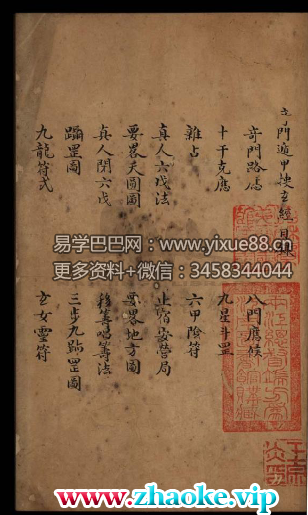 奇門遁甲捷玄經目錄
奇門路為 八門應候
十干克應 九星斗罡
雜占 六甲陰符
真人六戊法 止宿安營局
要畧天圖圖 要畧地方圖
真人閉六戊 移籌唱籌法
躡罡圖 三步九跡罡圖
九龍符式 玄女靈符
易学巴巴网：www.yixue88.cn
更多资料+微信：3458344044
www.zhaoke.vip